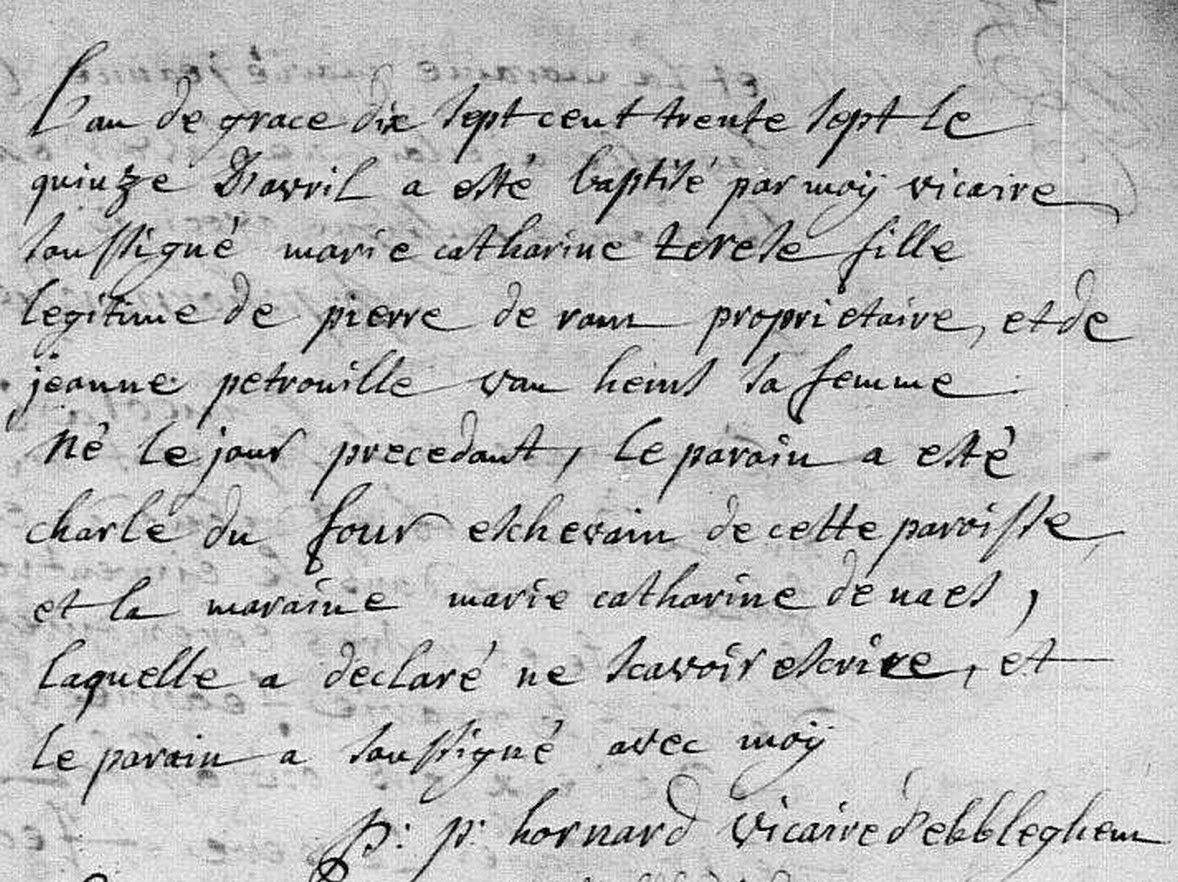 L'an de grace dix sept cent trente sept le
quinze D'avril a esté baptisé par moÿ vicaire
soussigné marie catharine terese fille
legitime de pierre de ram proprietaire, et de
jeanne petronille van heins sa femme
né le jour precedant, le parain a esté
charle du four eschevain de cette paroisse,
et la maraine marie catharine de naes,
laquelle a declaré ne scavoir escrire, et
le parain a soussigné avec moÿ
p: p: hornard vicaire d'ebbleghem